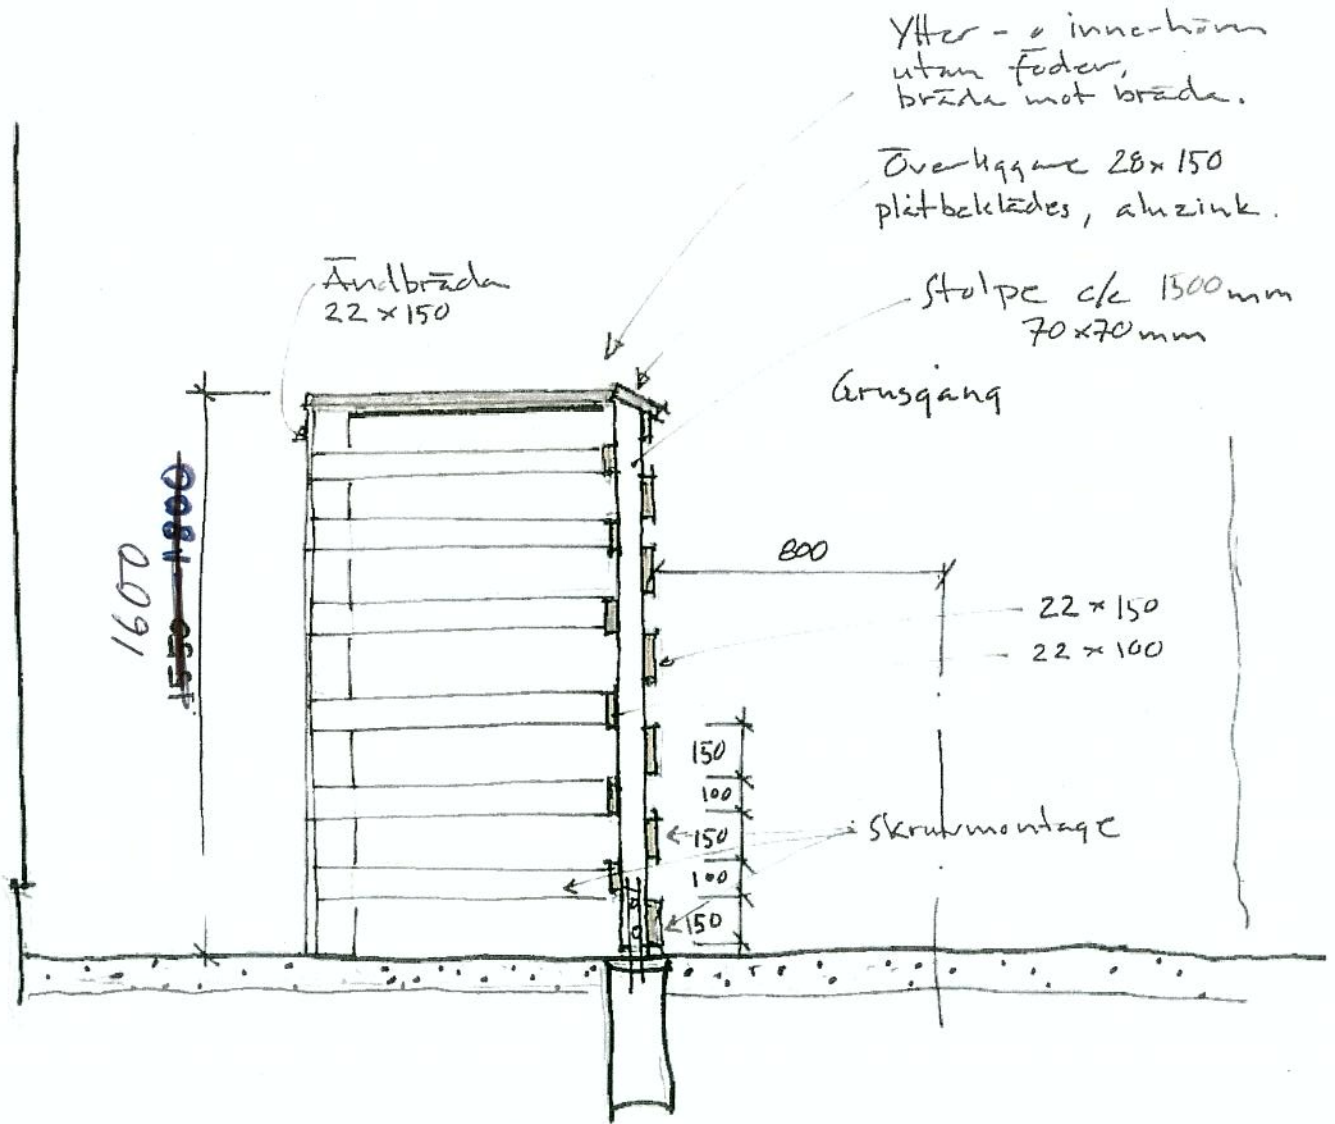 Ytter- o innerhörn
utan foder,
bräda mot bräda.
Överliggare 28x150
plåtbeklädes, aluzink.
Ändbräda
22x150
Stolpe c/c 1500mm
70x70mm
Grusgång
1600
1550-1800
800
22x150
22x100
150
100
150
100
150
Skruvmontage